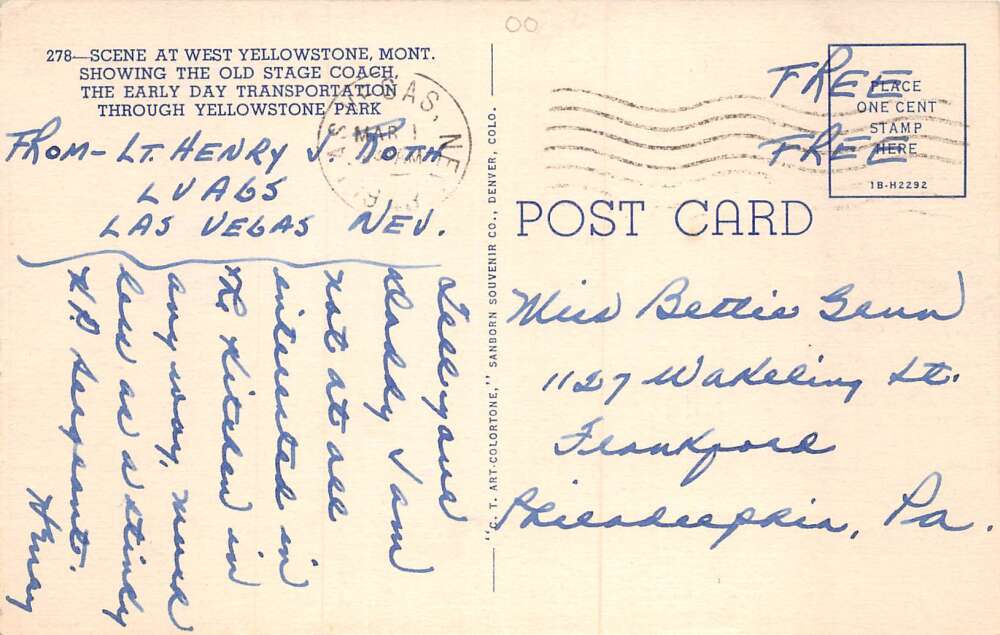 278—SCENE AT WEST YELLOWSTONE, MONT.
SHOWING THE OLD STAGE COACH,
THE EARLY DAY TRANSPORTATION
THROUGH YELLOWSTONE PARK
FROM - LT. HENRY J ROTH
LVAGS
LAS VEGAS NEV.
Tell your
Daddy I am
not at all
interested in
the kitchen in
any way, much
less as a
K.P. Sergeant.
Henry
"C. T. ART-COLORTONE," SANBORN SOUVENIR CO., DENVER, COLO.
VEGAS, NEV
MAR 1
FREE
FREE
PLACE
ONE CENT
STAMP
HERE
1B-H2292
POST CARD
Miss Bettie Genn
1127 Wakeling St.
Frankford
Philadelphia, Pa.
00